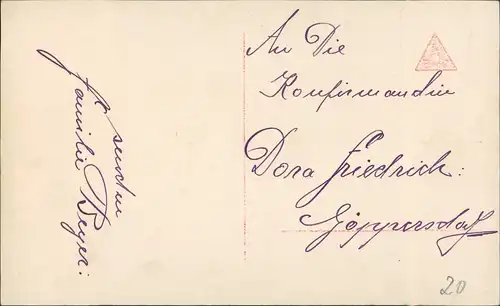 Es sendin
Familie Beyer:
An Die
Konfirmandin
Dora Friedrich:
Göppersdorf
20